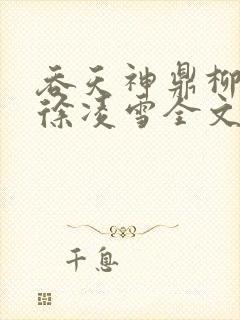 吞天神鼎柳
徐凌雪全文
千息